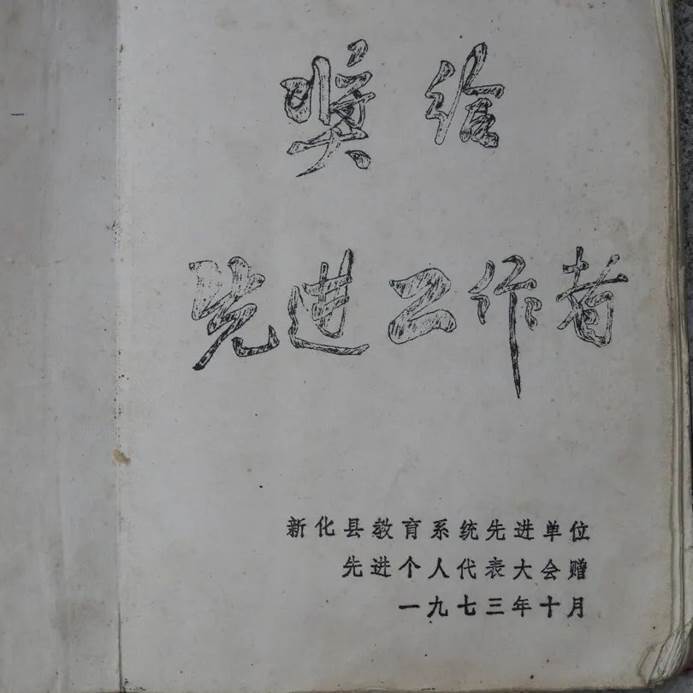 奖给
先进工作者
新化县教育系统先进单位
先进个人代表大会赠
一九七三年十月